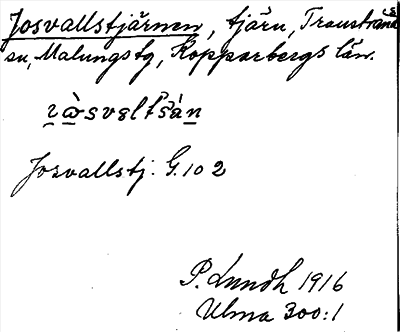 Josvallstjärnen, tjärn, Transtrands
sn, Malungs tg, Kopparbergs län.
Josvallstj. G. 102
P. Lundh 1916
Ulma 300:1